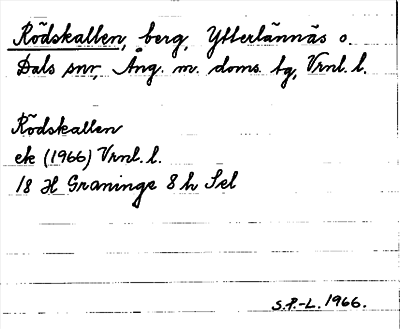 Rödskallen, berg, Ytterlännäs o.
Dals snr, Ång. m. doms. tg, Vrnl. l.
Rödskallen
ek (1966) Vrnl. l.
18 H Graninge 8 h Sel
S.P.-L. 1966.